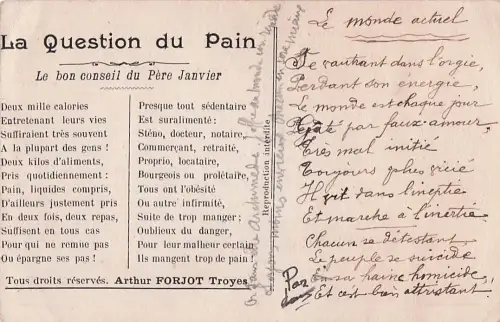 La Question du Pain
Le bon conseil du Père Janvier
Deux mille calories
Entretenant leurs vies
Suffiraient très souvent
A la plupart des gens !
Deux kilos d'aliments,
Pris quotidiennement :
Pain, liquides compris,
D'ailleurs justement pris
En deux fois, deux repas,
Suffisent en tous cas
Pour qui ne remue pas
Ou épargne ses pas !
Presque tout sédentaire
Est suralimenté :
Sténo, docteur, notaire,
Commerçant, retraité,
Proprio, locataire,
Bourgeois ou prolétaire,
Tous ont l'obésité
Ou autre infirmité,
Suite de trop manger ;
Oublieux du danger,
Pour leur malheur certain
Ils mangent trop de pain !
Tous droits réservés. Arthur FORJOT Troyes
Reproduction interdite.
Le monde actuel
Se vautrant dans l'orgie,
Perdant son énergie,
Le monde est chaque jour
Gâté par faux-amour,
Très mal initié
Toujours plus vicié
Il vit dans l'inertie
Et marche à l'inertie
Chacun se détestant
Le peuple se suicide
Par sa haine homicide,
Et c'est bien attristant !